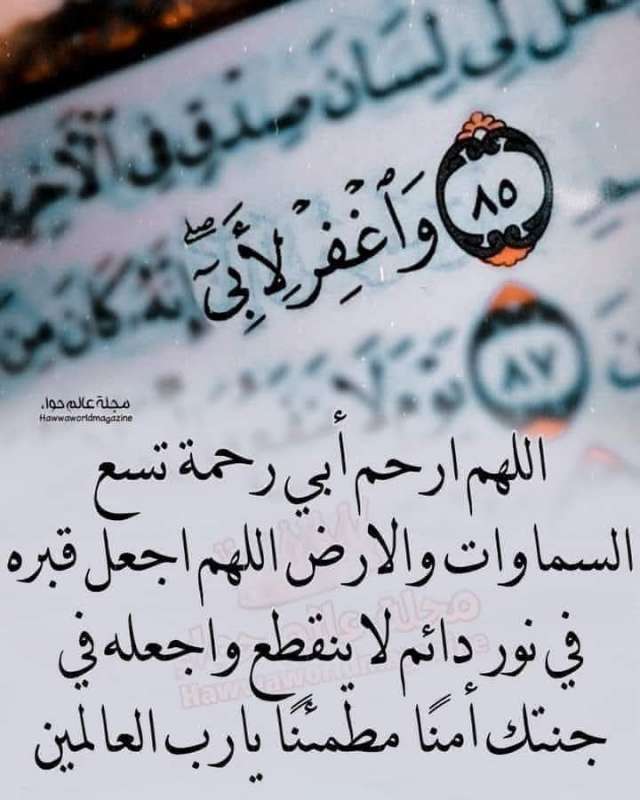 لِّى لِسَانَ صِدْقٍ فِى
٨٥ وَٱغْفِرْ لِأَبِىٓ إِنَّهُۥ كَانَ مِنَ
٨٧ يَوْمَ لَا يَنفَعُ
مجلة عالم حواء
Hawwaworldmagazine
اللهم ارحم أبي رحمة تسع
السماوات والارض اللهم اجعل قبره
في نور دائم لا ينقطع واجعله في
جنتك أمنًا مطمئنًا يارب العالمين
مجلة عالم حواء
Hawwaworldmagazine